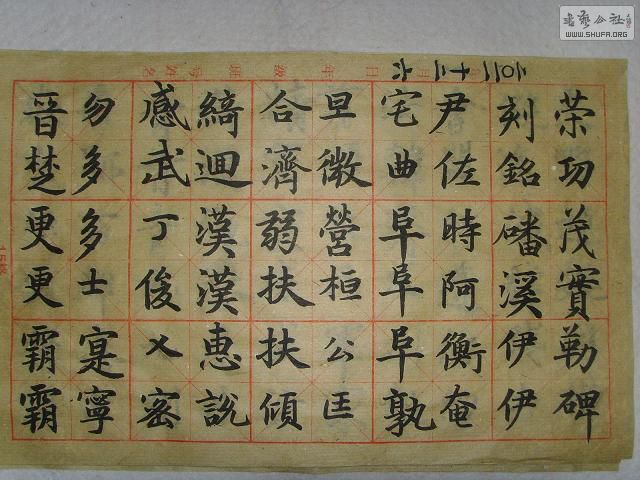 書藝公社
WWW.SHUFA.ORG
荣功茂實勒碑
刻銘磻溪伊伊
尹佐時阿衡奄
宅曲阜阜阜孰
旦微營桓公匡
合濟弱扶扶傾
綺迴漢漢惠說
感武丁俊乂密
勿多多士寔寧
晋楚更更霸霸